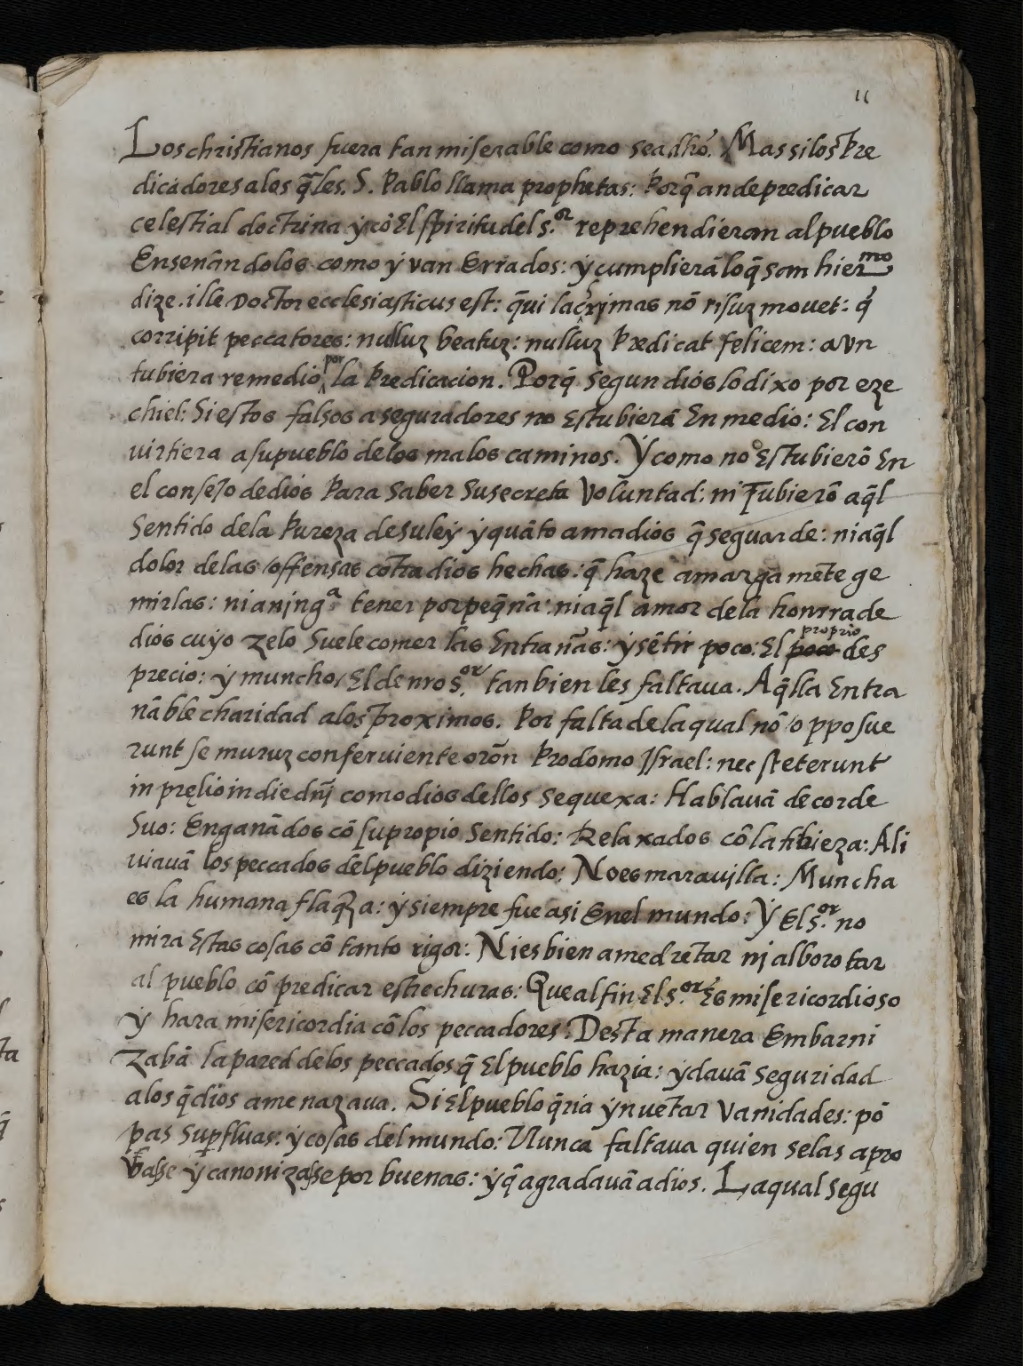 11
Los christianos fuera tan miserable como sea dho. Mas si los Pre
dicadores a los q̃les. S. Pablo llama prophetas: Porq̃ an de predicar
celestial doctrina ẏ cõ El spiritu del s.or reprehendieran al pueblo
Ensenãndolos como ẏ van Errados: ẏ cumplierã lo q̃ san hiermo
dize. ille Doctor ecclesiasticus est: q̃ui lachrÿmas nõ risuz mouet: q̃
corripit peccatores: nulluz beatuz: nulluz Predicat felicem: avn
tubiera remedio por la Predicacion. Porq̃ segun dios lo dixo por eze
chiel: Si estos falsos aseguradores no Estubierã En medio: El con
uirtiera a su pueblo de los malos caminos. Ẏ como no Estubierõ En
el consejo de dios Para saber su secreta Voluntad: ni Tubierõ aq̃l
Sentido de la Pureza de su leẏ ẏ quãto ama dios q̃ se guarde: ni aq̃l
dolor de las offensas cõtra dios hechas: q̃ haze amargamẽte ge
mirlas: ni a ninga tener por peq̃na: ni aq̃l amor de la honrra de
dios cuẏo zelo suele comer las Entrañas: ẏ sẽtir poco: El poco proprio des
precio: ẏ muncho El de nro s.or tan bien les faltaua. Aq̃lla Entra
ñable charidad a los proximos. Por falta de la qual nõ opposue
runt se muruz con feruiente orõn Pro domo Israel: nec steterunt
in pręlio in die dñj como dios dellos se quexa: Hablauã de corde
Suo: Enganãdos cõ su propio Sentido: Relaxados cõ la tibieza: Ali
uiauã los peccados del pueblo diziendo: No es marauilla: Muncha
es la humana flaq̃za: ẏ siempre fue asi En el mundo: Ẏ El s.or no
mira Estas cosas cõ tanto rigor: Ni es bien amedrẽtar nj alborotar
al pueblo cõ predicar estrechuras: Que al fin El s.or Es misericordioso
Ẏ hara misericordia cõ los peccadores. Desta manera Embarni
Zabã la pared de los peccados q̃ El pueblo hazia: ẏ dauã seguridad
a los q̃ dios amenazaua. Si El pueblo q̃ria ẏnuẽtar vanidades: põ
pas supfluas: ẏ cosas del mundo: Nunca faltaua quien se las apro
basse ẏ canonizasse por buenas: ẏ q̃ agradauã a dios. La qual segu